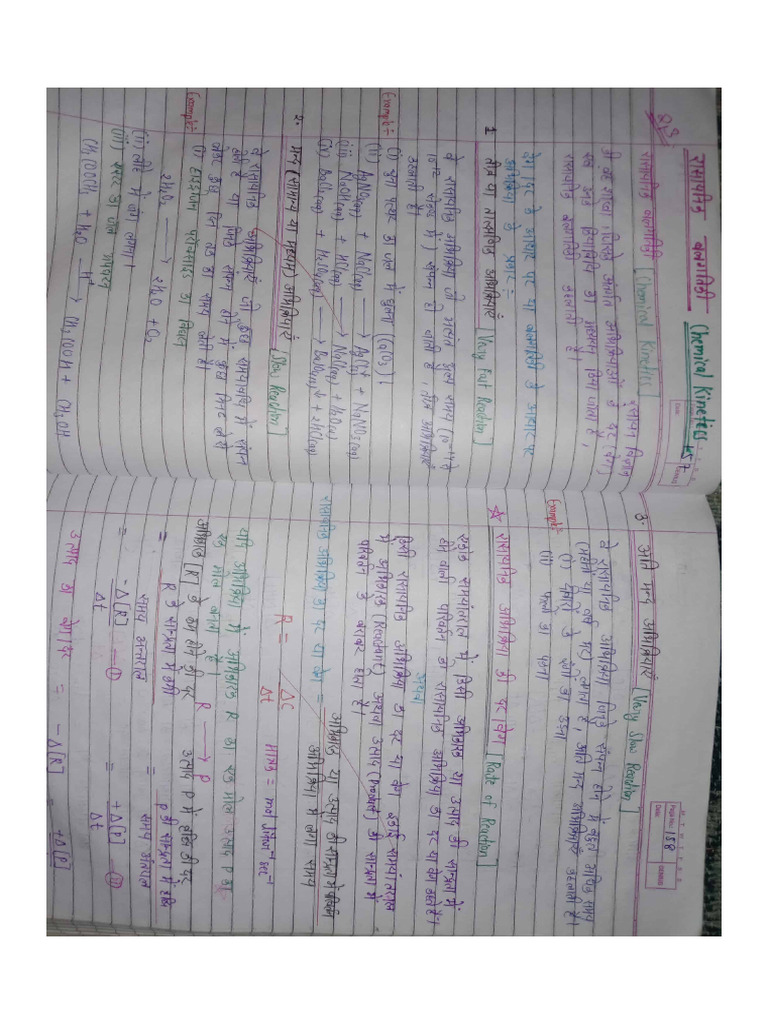 रासायनिक बलगतिकी Chemical Kinetics 157
रासायनिक बलगतिकी [Chemical Kinetics]
रसायन विज्ञान
की वह शाखा जिसके अंतर्गत अभिक्रियाओं के दर (वेग)
एवं उनके क्रियाविधि का अध्ययन किया जाता है,
रासायनिक बलगतिकी कहलाती है।
वेग/दर के आधार पर या बलगतिकी के आधार पर
अभिक्रिया के प्रकार :-
1. तीव्र या तात्क्षणिक अभिक्रियाएँ [Very Fast Reaction]
वे रासायनिक अभिक्रिया जो अत्यंत कम समय (10⁻¹⁴ से
सेकेण्ड में) सम्पन्न हो जाती है, तीव्र अभिक्रियाएँ
कहलाती है।
Example:-
(i) बुझा चूना का जल में घुलना
(ii) AgNO₃(aq) + NaCl(aq) → AgCl↓ + NaNO₃(aq)
(iii) NaOH(aq) + HCl(aq) → NaCl(aq) + H₂O(l)
(iv) BaCl₂(aq) + H₂SO₄(aq) → BaSO₄↓ + HCl(aq)
2. मन्द (सामान्य या मध्यम) अभिक्रियाएँ [Slow Reaction]
वे रासायनिक अभिक्रियाएँ जो कुछ समयावधि में सम्पन्न
होते है या जिसे सम्पन्न होने में कुछ मिनट लेकर
कुछ दिन तक का समय लेती है।
Example:-
(i) हाइड्रोजन परॉक्साइड का विघटन
2H₂O₂ → 2H₂O + O₂
(ii) लोहे में जंग लगना।
(iii) एस्टर का जल अपघटन
CH₃COOCH₃ + H₂O —H⁺→ CH₃COOH + CH₃OH
Page No. 158
3. अति मन्द अभिक्रियाएँ [Very Slow Reaction]
वे रासायनिक अभिक्रिया जिन्हें संपन्न होने में बहुत अधिक समय
(महीनों या वर्ष) लग जाता है, अति मन्द अभिक्रियाएँ कहलाती है।
Example:-
(i) के रंगों का उड़ना
(ii) फलों का पकना
☆ रासायनिक अभिक्रिया की दर/वेग [Rate of Reaction]
एकांक समयांतराल में किसी अभिकारक या उत्पाद की सान्द्रता में
होने वाली परिवर्तन को रासायनिक अभिक्रिया का दर या वेग कहते हैं।
अथवा
किसी रासायनिक अभिक्रिया का दर या वेग इकाई समयांतराल
में अभिकारक (Reactant) अथवा उत्पाद (Product) की सान्द्रता में
परिवर्तन के बराबर होता है।
रासायनिक अभिक्रिया का दर या वेग = अभिकारक या उत्पाद की सान्द्रता में परिवर्तन
अभिक्रिया में लगा समय
R = ΔC / Δt मात्रक = mol litre⁻¹ sec⁻¹
यदि अभिक्रिया में अभिकारक R का एक मोल उत्पाद P का
एक मोल बनाता है।
R → P
अभिकारक [R] के कम होने की दर उत्पाद P में वृद्धि की दर
= R के सान्द्रता में कमी / समय अन्तराल = P की सान्द्रता में वृद्धि / समय अन्तराल
= -Δ[R] / Δt —① = +Δ[P] / Δt —②
उत्पाद का वेग/दर = -Δ[R] = +Δ[P]